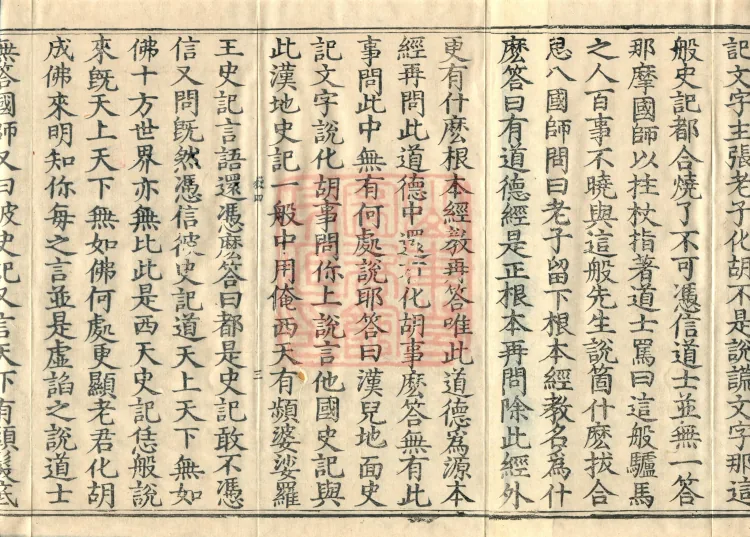 記文字主張老子化胡不是說謊文字那這
般史記都合燒了不可憑信道士並無一答
那摩國師以拄杖指著道士罵曰這般驢馬
之人百事不曉與這般先生說箇什麽拔合
思八國師問曰老子留下根本經教名爲什
麽答曰有道德經是正根本再問除此經外
更有什麽根本經教再答唯此道德爲源本
經再問此道德中還有化胡事麽答無有此
事問此中無有何處說耶答曰漢兒地面史
記文字說化胡事問你上說言他國史記與
此漢地史記一般中用俺西天有頻婆娑羅
王史記言語還憑麽答曰都是史記敢不憑
信又問旣然憑信彼史記道天上天下無如
佛十方世界亦無比此是西天史記恁般說
來旣天上天下無如佛何處更顯老君化胡
成佛來明知你每之言並是虛謟之說道士
無答國師又曰彼史記又信天下有頭髮底